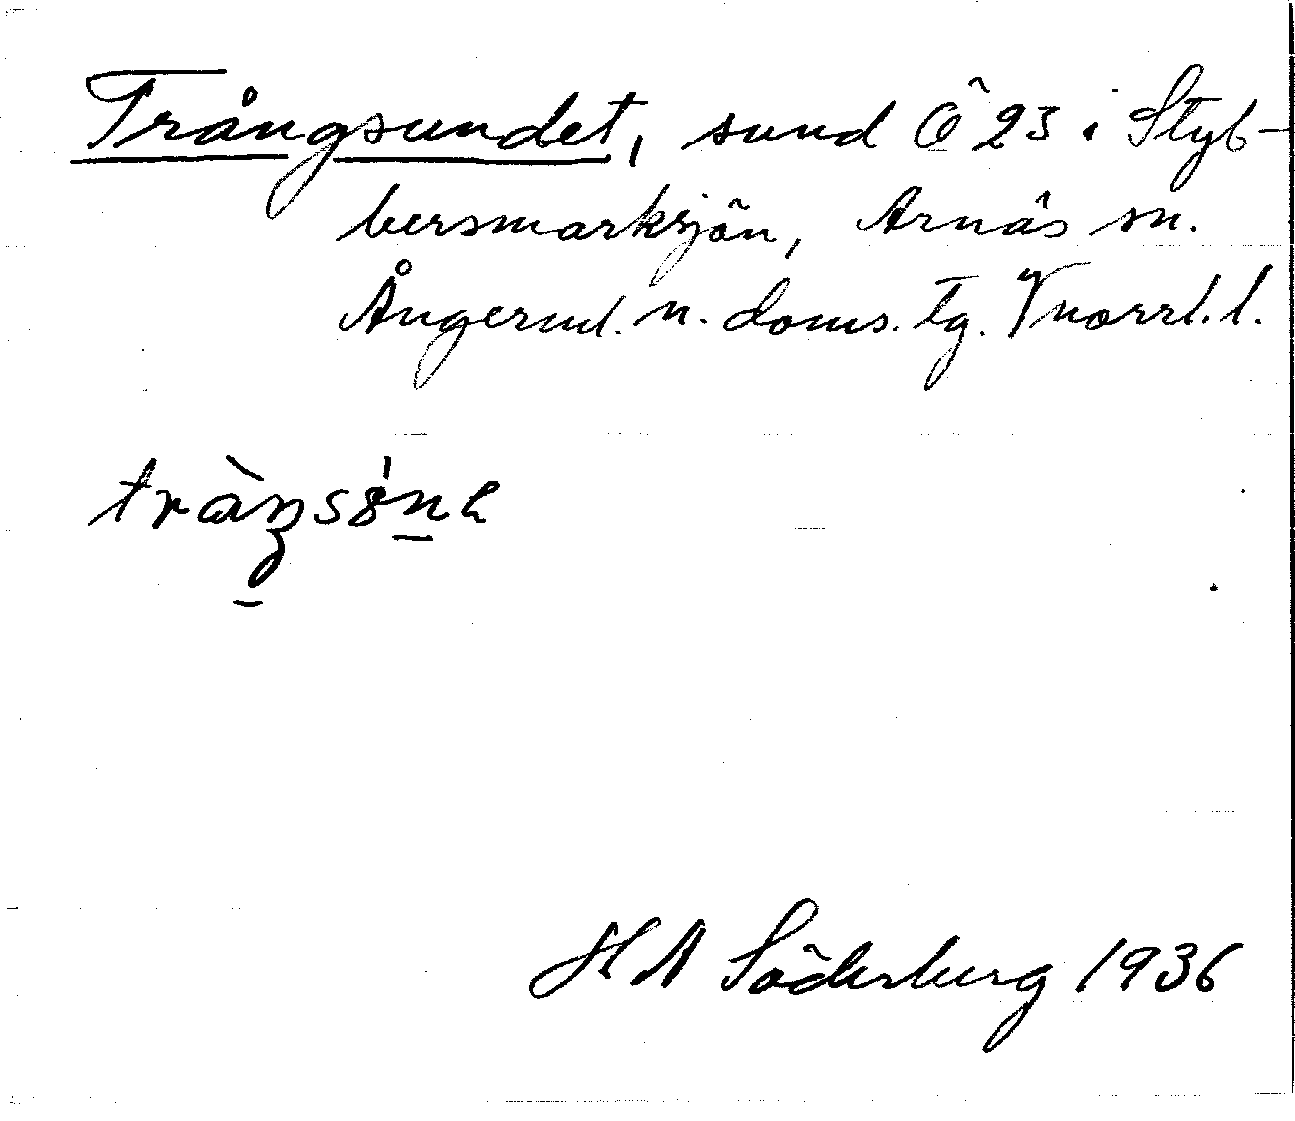 Trångsundet, sund Ö 23 i Styb-
bersmarksjön, Arnäs sn.
Ångerml. n. doms. tg. Vnorrl. l.
H A Söderberg 1936